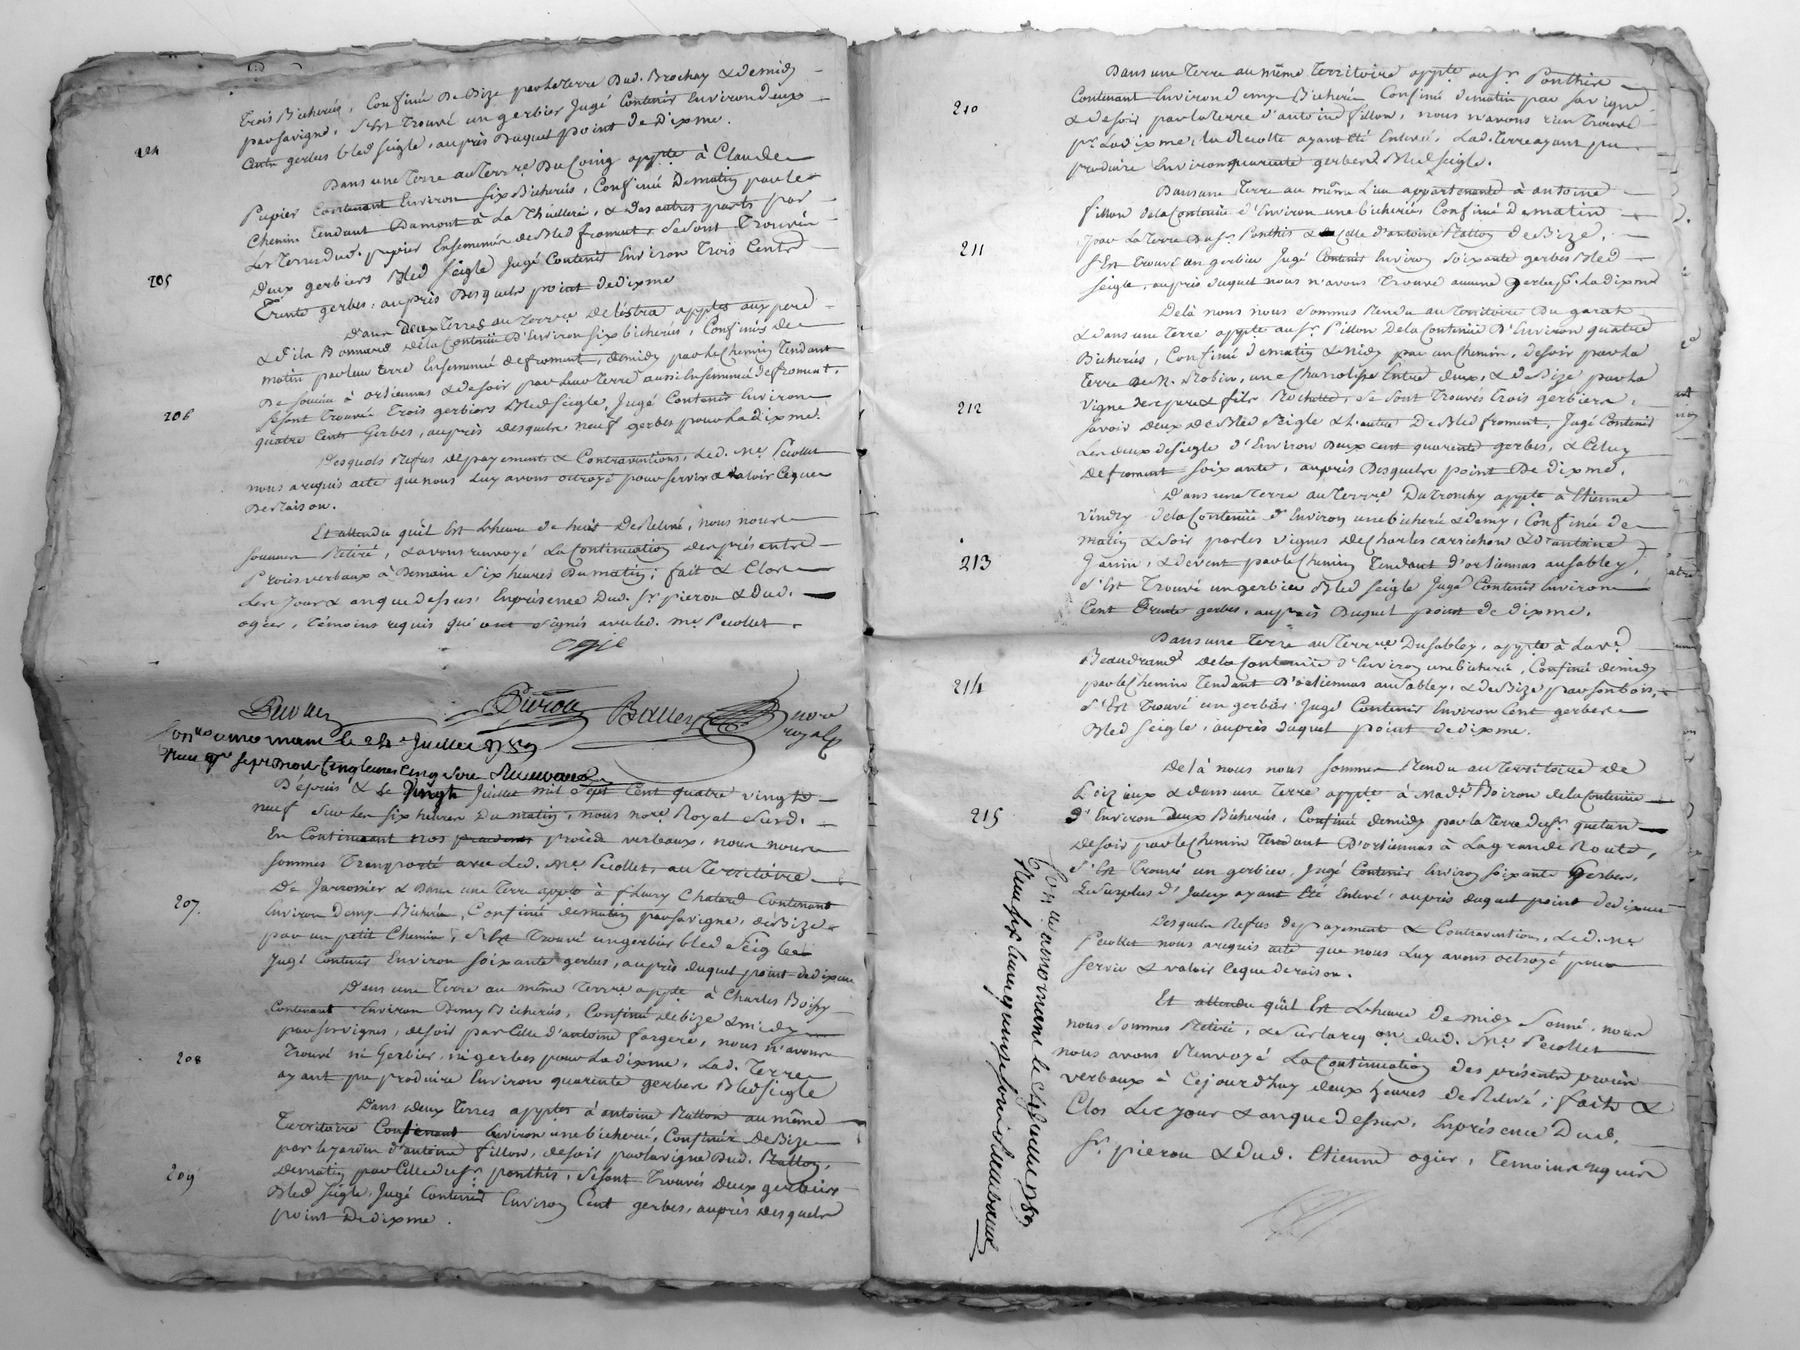 trois Bicherées, Confiné De Bize par la terre Dud. Brochay & de midy
par sa vigne, s'Est trouvé un gerbier Jugé Contenir Environ deux
204
Cents gerbes bled seigle, auprès Duquel point de Dixme.
Dans une Terre au Terr.re Du Coing appte à Claude
Pupier Contenant Environ six Bicherées, Confiné De matin par le
Chemin tendant Damont à La Thuillere, & des autres parts par
Les Terres dud. pupier Ensemencée de Bled froment, se sont Trouvés
205
Deux gerbiers Bled seigle Jugé Contenir Environ Trois Cents
Trente gerbes, auprès Desquels point de dixme
Dans Deux Terres au Terr.re De lestra apptes aux pere
& fils Bonnard De la Contenüe D'Environ six bicherées, Confinés de
matin par leur terre Ensemencé de froment, de midy par le Chemin Tendant
De Soucieu à orliennas & de soir par Leur Terre aussi Ensemencé de froment,
206
se sont Trouvés Trois gerbiers Bled seigle, Jugé Contenir Environ
quatre Cents Gerbes, auprès desquels neuf gerbes pour La dixme.
Desquels Refus de payements & Contraventions, Led. Me. Pecollet
nous a requis acte que nous Luy avons octroyé pour servir & valoir Ce que
De Raison.
Et attendu qu'il Est L'heure de huit De Relevé, nous nous
sommes Retiré, & avons renvoyé La Continuation des présents
Procès verbaux à Demain six heures Du matin; fait & Clos
Les Jour & an que dessus Enprésence Dud. Sr. pierou & Dud.
ogier, Témoins requis qui ont signés avec led. Me. Pecollet.
ogie
Pierou
royal
Con.lle a mornant le 24e Juillet 1789
Reçu
D'épuis & Le Vingt Juillet mil sept Cent quatre vingts
neuf sur Les six heures Du matin, nous no.re Royal Susd.
En Continuant nos procès verbaux, nous nous
sommes Transporté avec Led. Me. Pecollet, au Territoire
De Jarronier & Dans une Terre appte à fleury Chatard Contenant
207.
Environ Demy Bicherée, Confiné de matin par sa vigne, de Bize
par un petit Chemin, s'Est Trouvé un gerbier bled seigle
Jugé Contenir Environ soixante gerbes, auprès duquel point de dixme
Dans une Terre au même Terr.re appte à Charles Boissy
Contenant Environ Demy Bicherée, Confiné de bize & midy
par ses vignes, de soir par Celle d'antoine fargere, nous n'avons
208
Trouvé ni Gerbier, ni gerbes pour La dixme, Lad. Terre
ayant pu produire Environ quarente gerbes Bled seigle
Dans deux Terres apptes à antoine Ratton au même
Territoire Contenant Environ une bicherée, Confinés De Bize
par le jardin d'antoine fillon, de soir par la vigne Dud. Ratton,
209
de matin par Celle du Sr. ponthis, se sont Trouvés Deux gerbiers
Bled seigle, Jugé Contenir Environ Cent gerbes, auprès desquels
point De dixme.
Dans une Terre au même Territoire appte au Sr. Ponthis
210
Contenant Environ demy Bicherée Confiné de matin par sa vigne
& de soir par la terre d'antoine fillon, nous n'avons rien Trouvé
pr. La dixme, la Recolte ayant été Enlevée, Lad. Terre ayant pu
produire Environ quarente gerbes Bled seigle.
Dans une Terre au même Lieu appartenante à antoine
fillon de la Contenüe d'Environ une bicherée Confiné De matin
par La Terre Du Sr. Ponthis & de Celle d'antoine Ratton de Bize,
211
s'Est Trouvé un gerbier Jugé Contenir Environ soixante gerbes Bled
seigle, auprès duquel nous n'avons Trouvé aucune gerbe pr. La dixme
Delà nous nous sommes Rendu au Territoire Du garat
& dans une Terre appte au Sr. Pillon De la Contenüe D'Environ quatre
Bicherées, Confiné de matin & midy par un Chemin, de soir par la
Terre De N. Robin, une Charolisse Entre deux, & de Bize par la
212
vigne des pere & fils Rochette, se sont Trouvés trois gerbiers,
savoir deux de Bled seigle & L'autre De Bled froment, Jugé Contenir
Les deux de seigle d'Environ Deux cent quarente gerbes, & Celuy
De froment soixante, auprès Desquels point De dixme.
Dans une Terre au Terr.re Du tronchy appte à Etienne
Vindry de la Contenüe d'Environ une bicherée & demy, Confinée de
matin & soir par les vignes de Charles carrichon & d'antoine
213
Garin, & de vent par le Chemin Tendant d'orliennas au sabley,
s'Est Trouvé un gerbier Bled seigle Jugé Contenir Environ
Cent Trente gerbes, auprès Duquel point de dixme.
Dans une Terre au Terr.re Du sabley, appte à La ve.
Beaudrand de la Contenüe d'Environ une bicherée, Confiné de midy
214
par le Chemin Tendant D'orliennas au sabley, & de Bize par son bois,
s'Est Trouvé un gerbier Jugé Contenir Environ Cent gerbes
Bled seigle, auprès duquel point de dixme.
Delà nous nous sommes Rendu au Territoire de
Loizieux & dans une Terre appte à Made. Boiron de la Contenüe
215
D'Environ Deux Bicherées, Confiné de midy par la Terre du Sr. guetan
de soir par le Chemin Tendant D'orliennas à La grande Route,
s'Est Trouvé un gerbier, Jugé Contenir Environ soixante Gerbes,
Le surplus d'Icelux ayant Eté Enlevé, auprès duquel point de dixme
Desquels Refus de payement & Contravention, Led. Me.
Pecollet nous a requis acte que nous Luy avons octroyé pour
servir & valoir Ce que de raison.
Et attendu qu'il Est L'heure de midy sonné, nous
nous sommes Retiré, & sur la req.on dud. Me. Pecollet
nous avons Renvoyé La Continuation des présents procès
verbaux à Cejourd'huy deux heures de Relevé; fait &
Clos Les jour & an que dessus, Enprésence Dud.
Sr. pierou & Dud. Etienne ogier, Témoins requis
Con.lle a mornant le 24 Juillet 1789